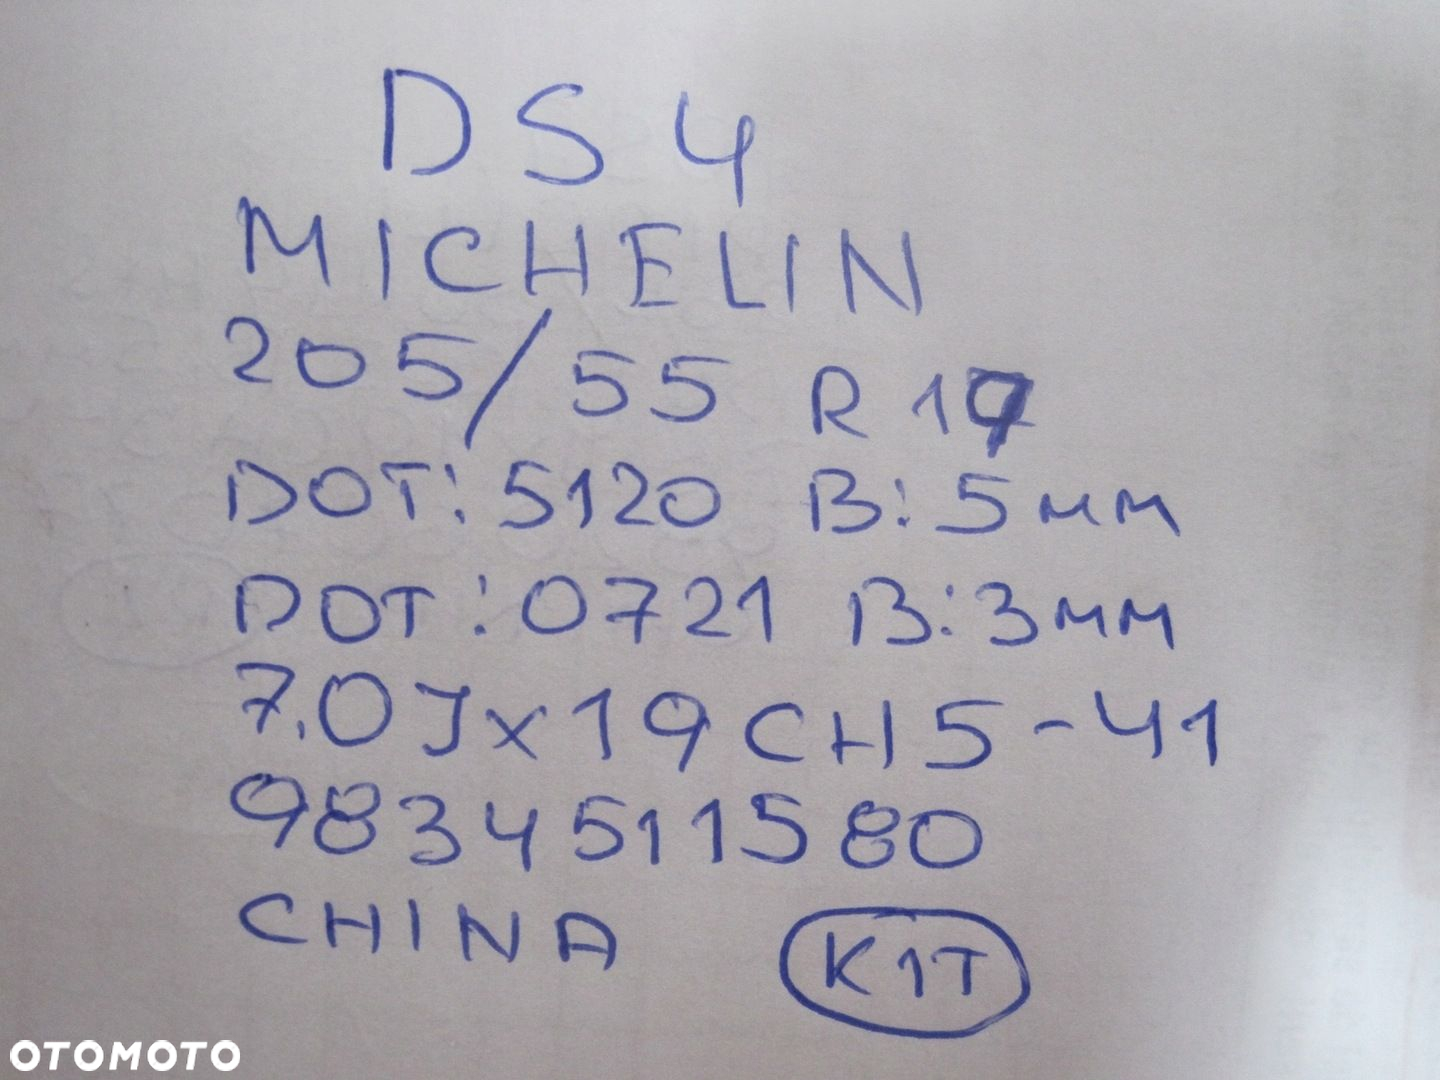 DS 4
MICHELIN
205/55 R 19
DOT: 5120 B: 5mm
DOT: 0721 B: 3mm
7.0Jx19CH5-41
9834511580
CHINA K1T
OTOMOTO